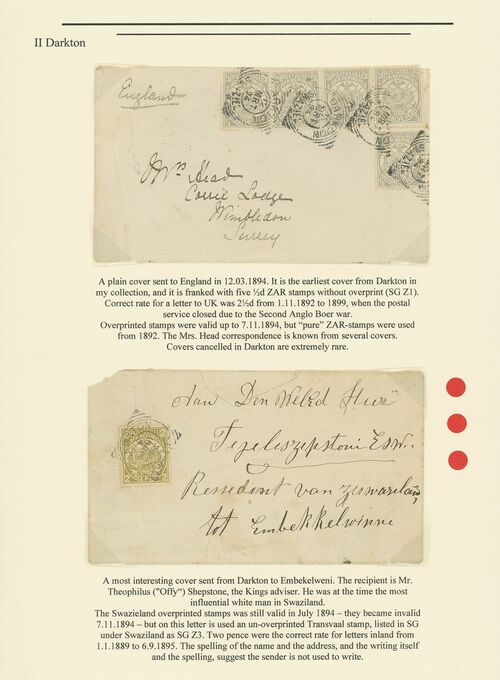 II Darkton
England
Mrs Head
Corrie Lodge
Wimbledon
Surrey
A plain cover sent to England in 12.03.1894. It is the earliest cover from Darkton in
my collection, and it is franked with five ½d ZAR stamps without overprint (SG Z1).
Correct rate for a letter to UK was 2½d from 1.11.1892 to 1899, when the postal
service closed due to the Second Anglo Boer war.
Overprinted stamps were valid up to 7.11.1894, but “pure” ZAR-stamps were used
from 1892. The Mrs. Head correspondence is known from several covers.
Covers cancelled in Darkton are extremely rare.
Aan Den Weled Heer
Tepeliszepstoni Esw.
Ressedent van zeswazilan,
tot Embekkelwinne
A most interesting cover sent from Darkton to Embekelweni. The recipient is Mr.
Theophilus ("Offy“) Shepstone, the Kings adviser. He was at the time the most
influential white man in Swaziland.
The Swazieland overprinted stamps was still valid in July 1894 – they became invalid
7.11.1894 – but on this letter is used an un-overprinted Transvaal stamp, listed in SG
under Swaziland as SG Z3. Two pence were the correct rate for letters inland from
1.1.1889 to 6.9.1895. The spelling of the name and the address, and the writing itself
and the spelling, suggest the sender is not used to write.